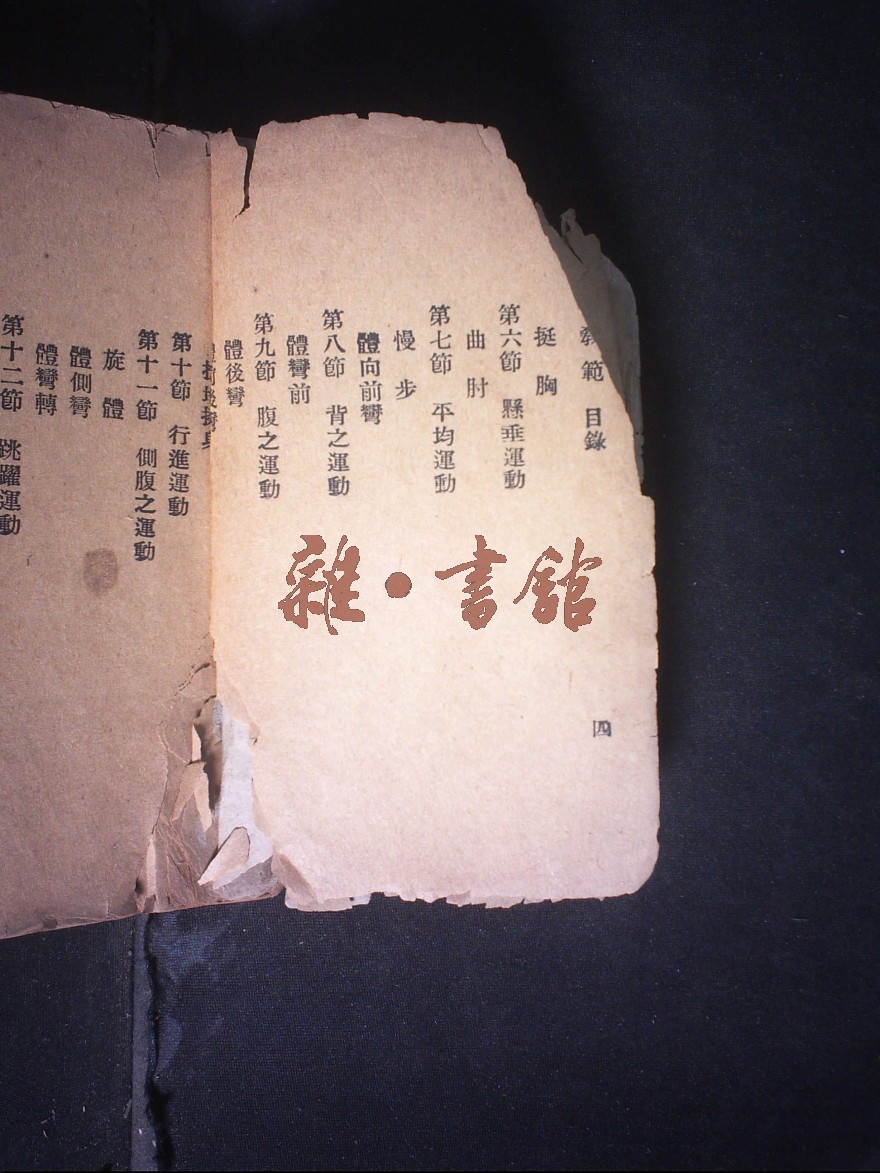 範 目錄
挺胸
第六節 懸垂運動
曲肘
第七節 平均運動
慢步
體向前彎
第八節 背之運動
體彎前
第九節 腹之運動
體後彎
第十節 行進運動
第十一節 側腹之運動
旋體
體側彎
體彎轉
第十二節 跳躍運動
四
雜·書館